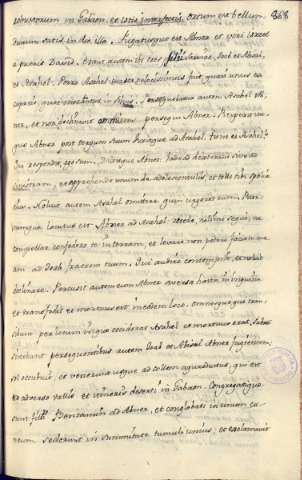 robustorum in Gabaon, et ortum est bellum
durum satis in die illa. Fugatusque est Abner et viri Israel
a pueris David. Erant autem ibi tres filii Sarviae, Joab et Abisai,
et Asahel. Porro Asahel cursor velocissimus fuit, quasi unus ex
capreis, quae morantur in silvis. Persequebatur autem Asahel Ab-
ner, et non declinavit omittens persequi Abner. Respexit ita-
que Abner post tergum suum dixitque ad Asahel. Tu ne es Asahel?
Qui respondit, ego sum. Dixitque Abner. Vade ad dexteram sive ad
sinistram, et apprehende unum de adolescentibus, et tolle tibi spolia
ejus. Noluit autem Asahel omittere quin urgeret eum. Rur-
sumque locutus est Abner ad Asahel: recede, noli me sequi, ne
compellar confodere te in terram, et levare non potero faciem me-
am ad Joab fratrem tuum. Qui audire contempsit, et noluit
declinare. Percussit autem eum Abner aversa hasta in inguine,
et transfodit, et mortuus est in eodem loco, omnesque qui tran-
sibant per locum in quo ceciderat Asahel et mortuus erat, subsi-
stebant. Persequentibus autem Joab et Abisai Abner fugientem,
sol occubuit, et venerunt usque ad collem aquaeductus, qui est
ex adverso vallis et itineris deserti in Gabaon. Congregatique
sunt filii Benjamin ad Abner, et conglobati in unum cu-
neum steterunt in summitate tumuli unius, et exclamavit